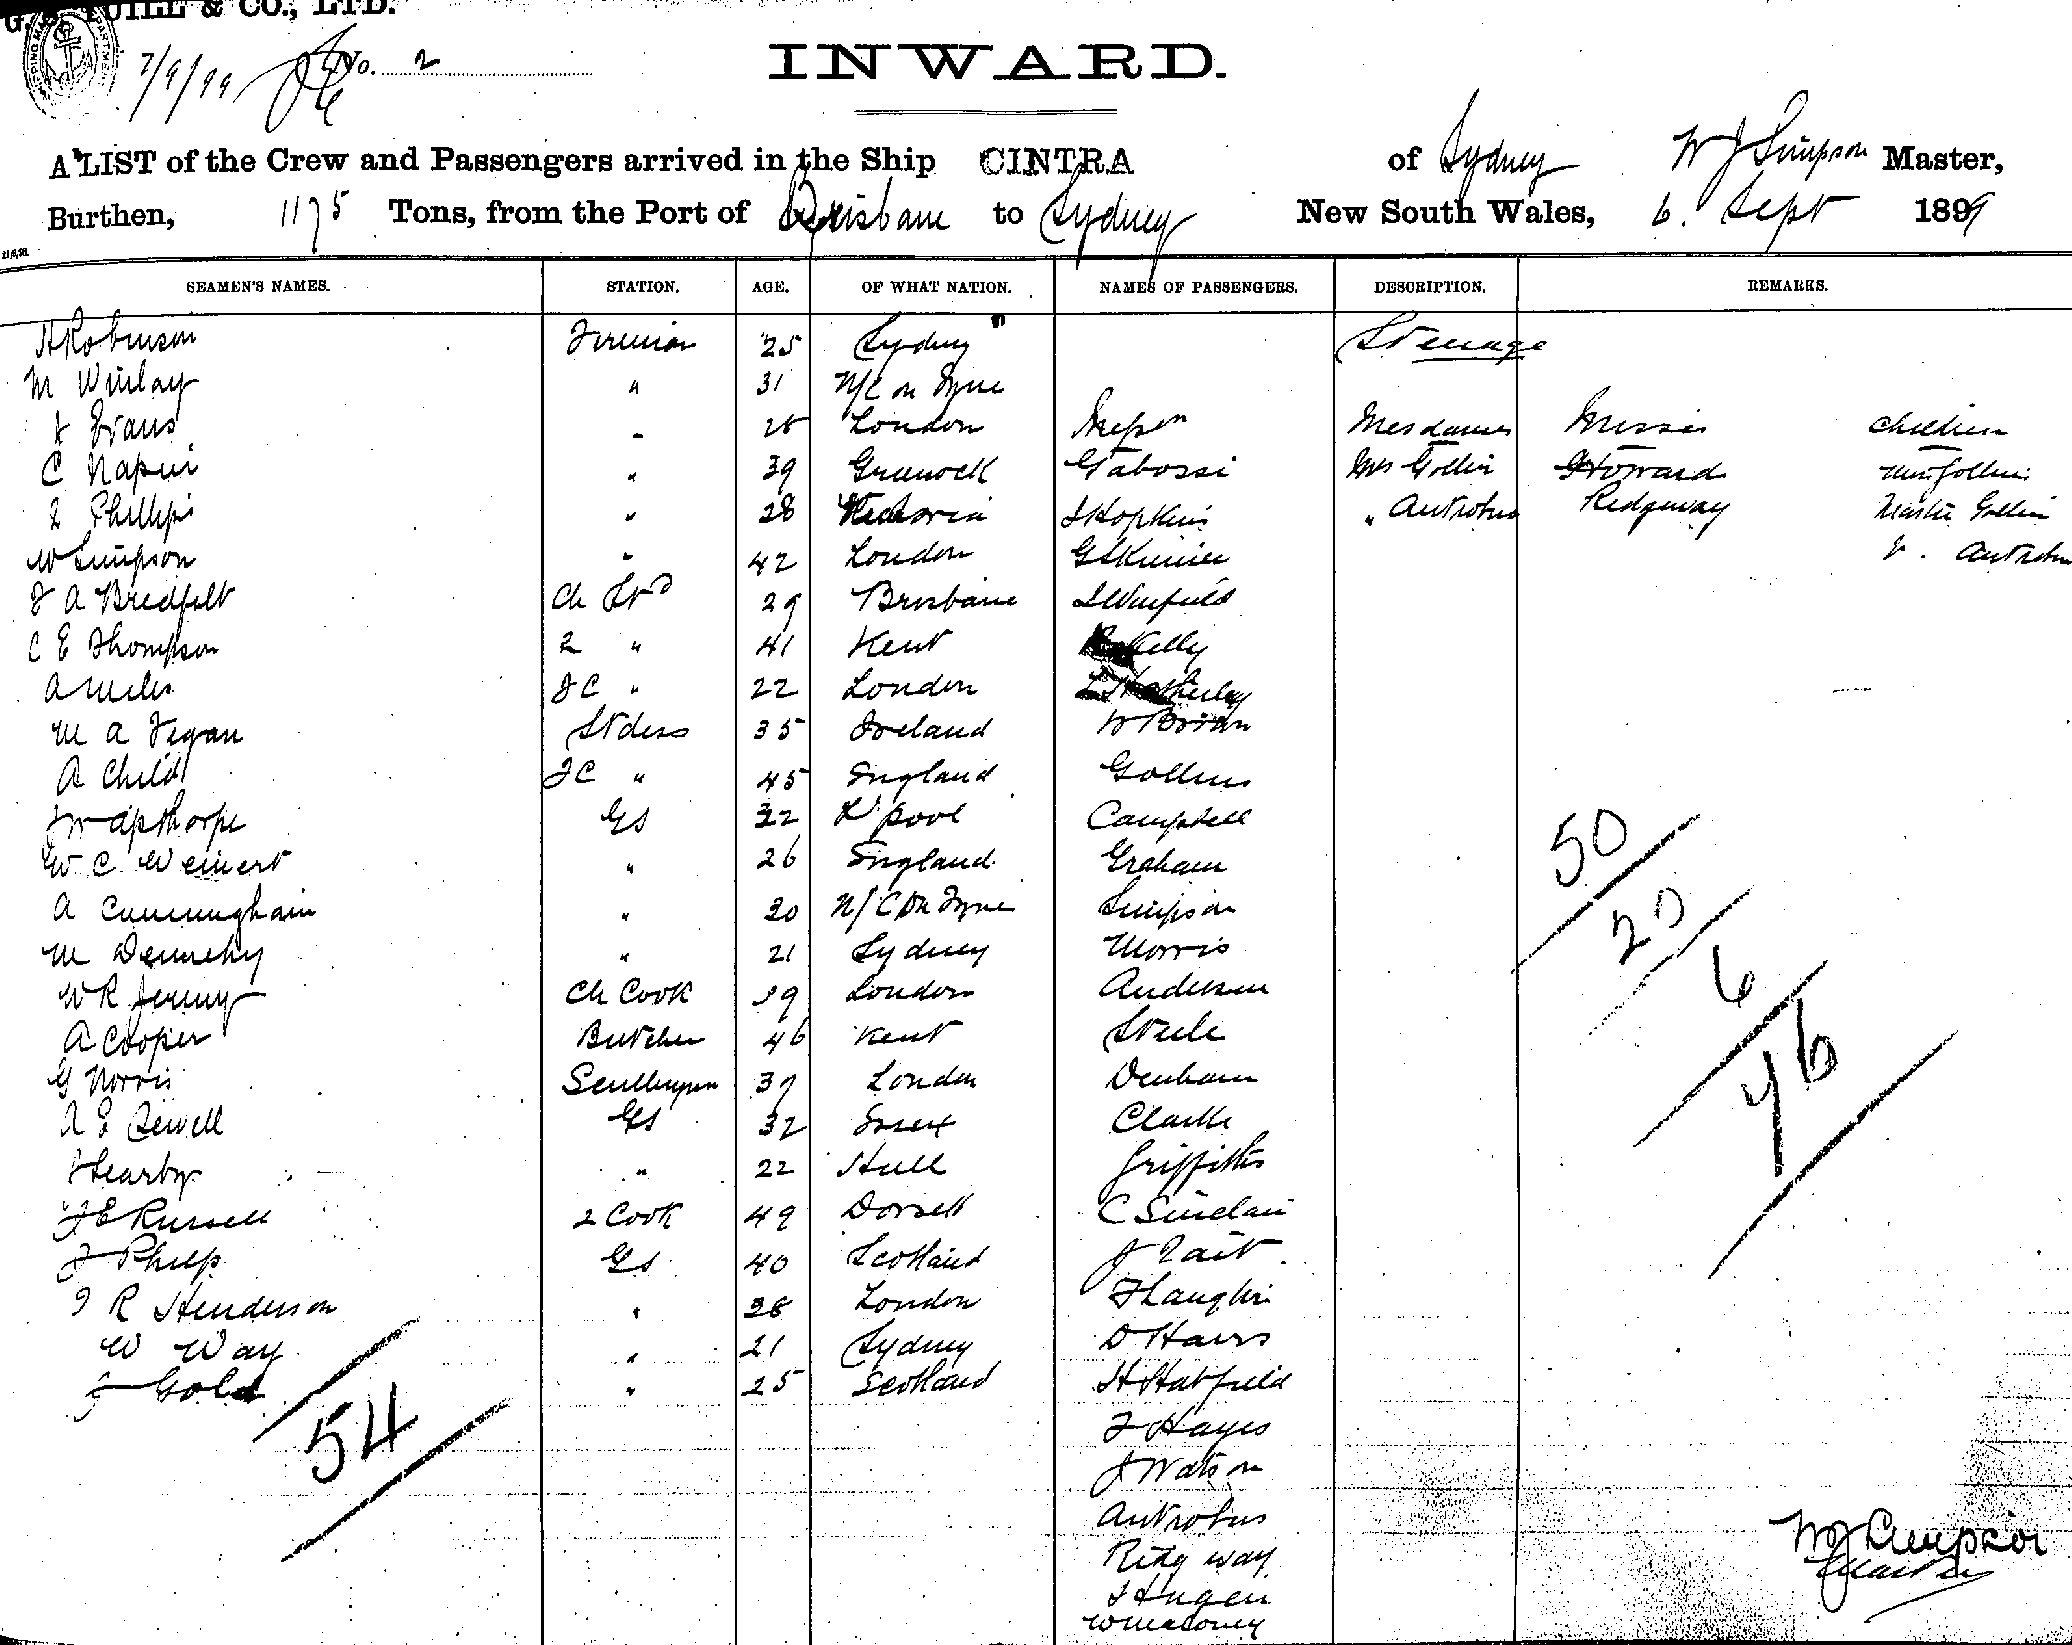 & CO., LTD.
7/9/99 No. 2
INWARD.
A LIST of the Crew and Passengers arrived in the Ship CINTRA of Sydney W J Simpson Master,
Burthen, 1175 Tons, from the Port of Brisbane to Sydney New South Wales, 6. Sept 1899
SEAMEN'S NAMES. STATION. AGE. OF WHAT NATION. NAMES OF PASSENGERS. DESCRIPTION. REMARKS.
H Robinson Fireman 25 Sydney Steerage
M " 31 N/C on Tyne
J Evans " London Messrs Mesdames Misses Children
C Napier " 39 Greenock Gabossi Mrs Gollin Howard Miss Gollin
Phillips " 28 Victoria J Hopkins " Antrobus Ridgeway Master Gollin
W Simpson " 42 London G Skinner " Antrobus
J A Bredfelt Ch Std 29 Brisbane J Winfield
C E Thompson 2 " 41 Kent Kelly
A Miles JC " 22 London
M A Fegan Stdess 35 Ireland W Brian
A Child JC " 45 England Gollins
J W Apthorpe GS 32 L'pool Campbell
W C Weinert " 26 England Graham
A Cunningham " 30 N/C on Tyne Simpson
M Dennehy " 21 Sydney Morris
W R Jenny Ch Cook 39 London Anderson
A Cooper Butcher 46 Kent Steele
G Norris Sculleryman 37 London Denham
A E Sewell GS 32 Essex Clarke
J Searby " 22 Hull Griffiths
J E Russell 2 Cook 49 Dorset C Sinclair
J Philp GS 40 Scotland J Tait
J R Henderson " 38 London J Laughlin
W Way " 21 Sydney D Haws
J Gold " 25 Scotland H Hatfield
J Hayes
J Watson
Antrobus
Ridgway
J Hugen
W Maloney
50
20
6
76
54
W J Simpson
Master